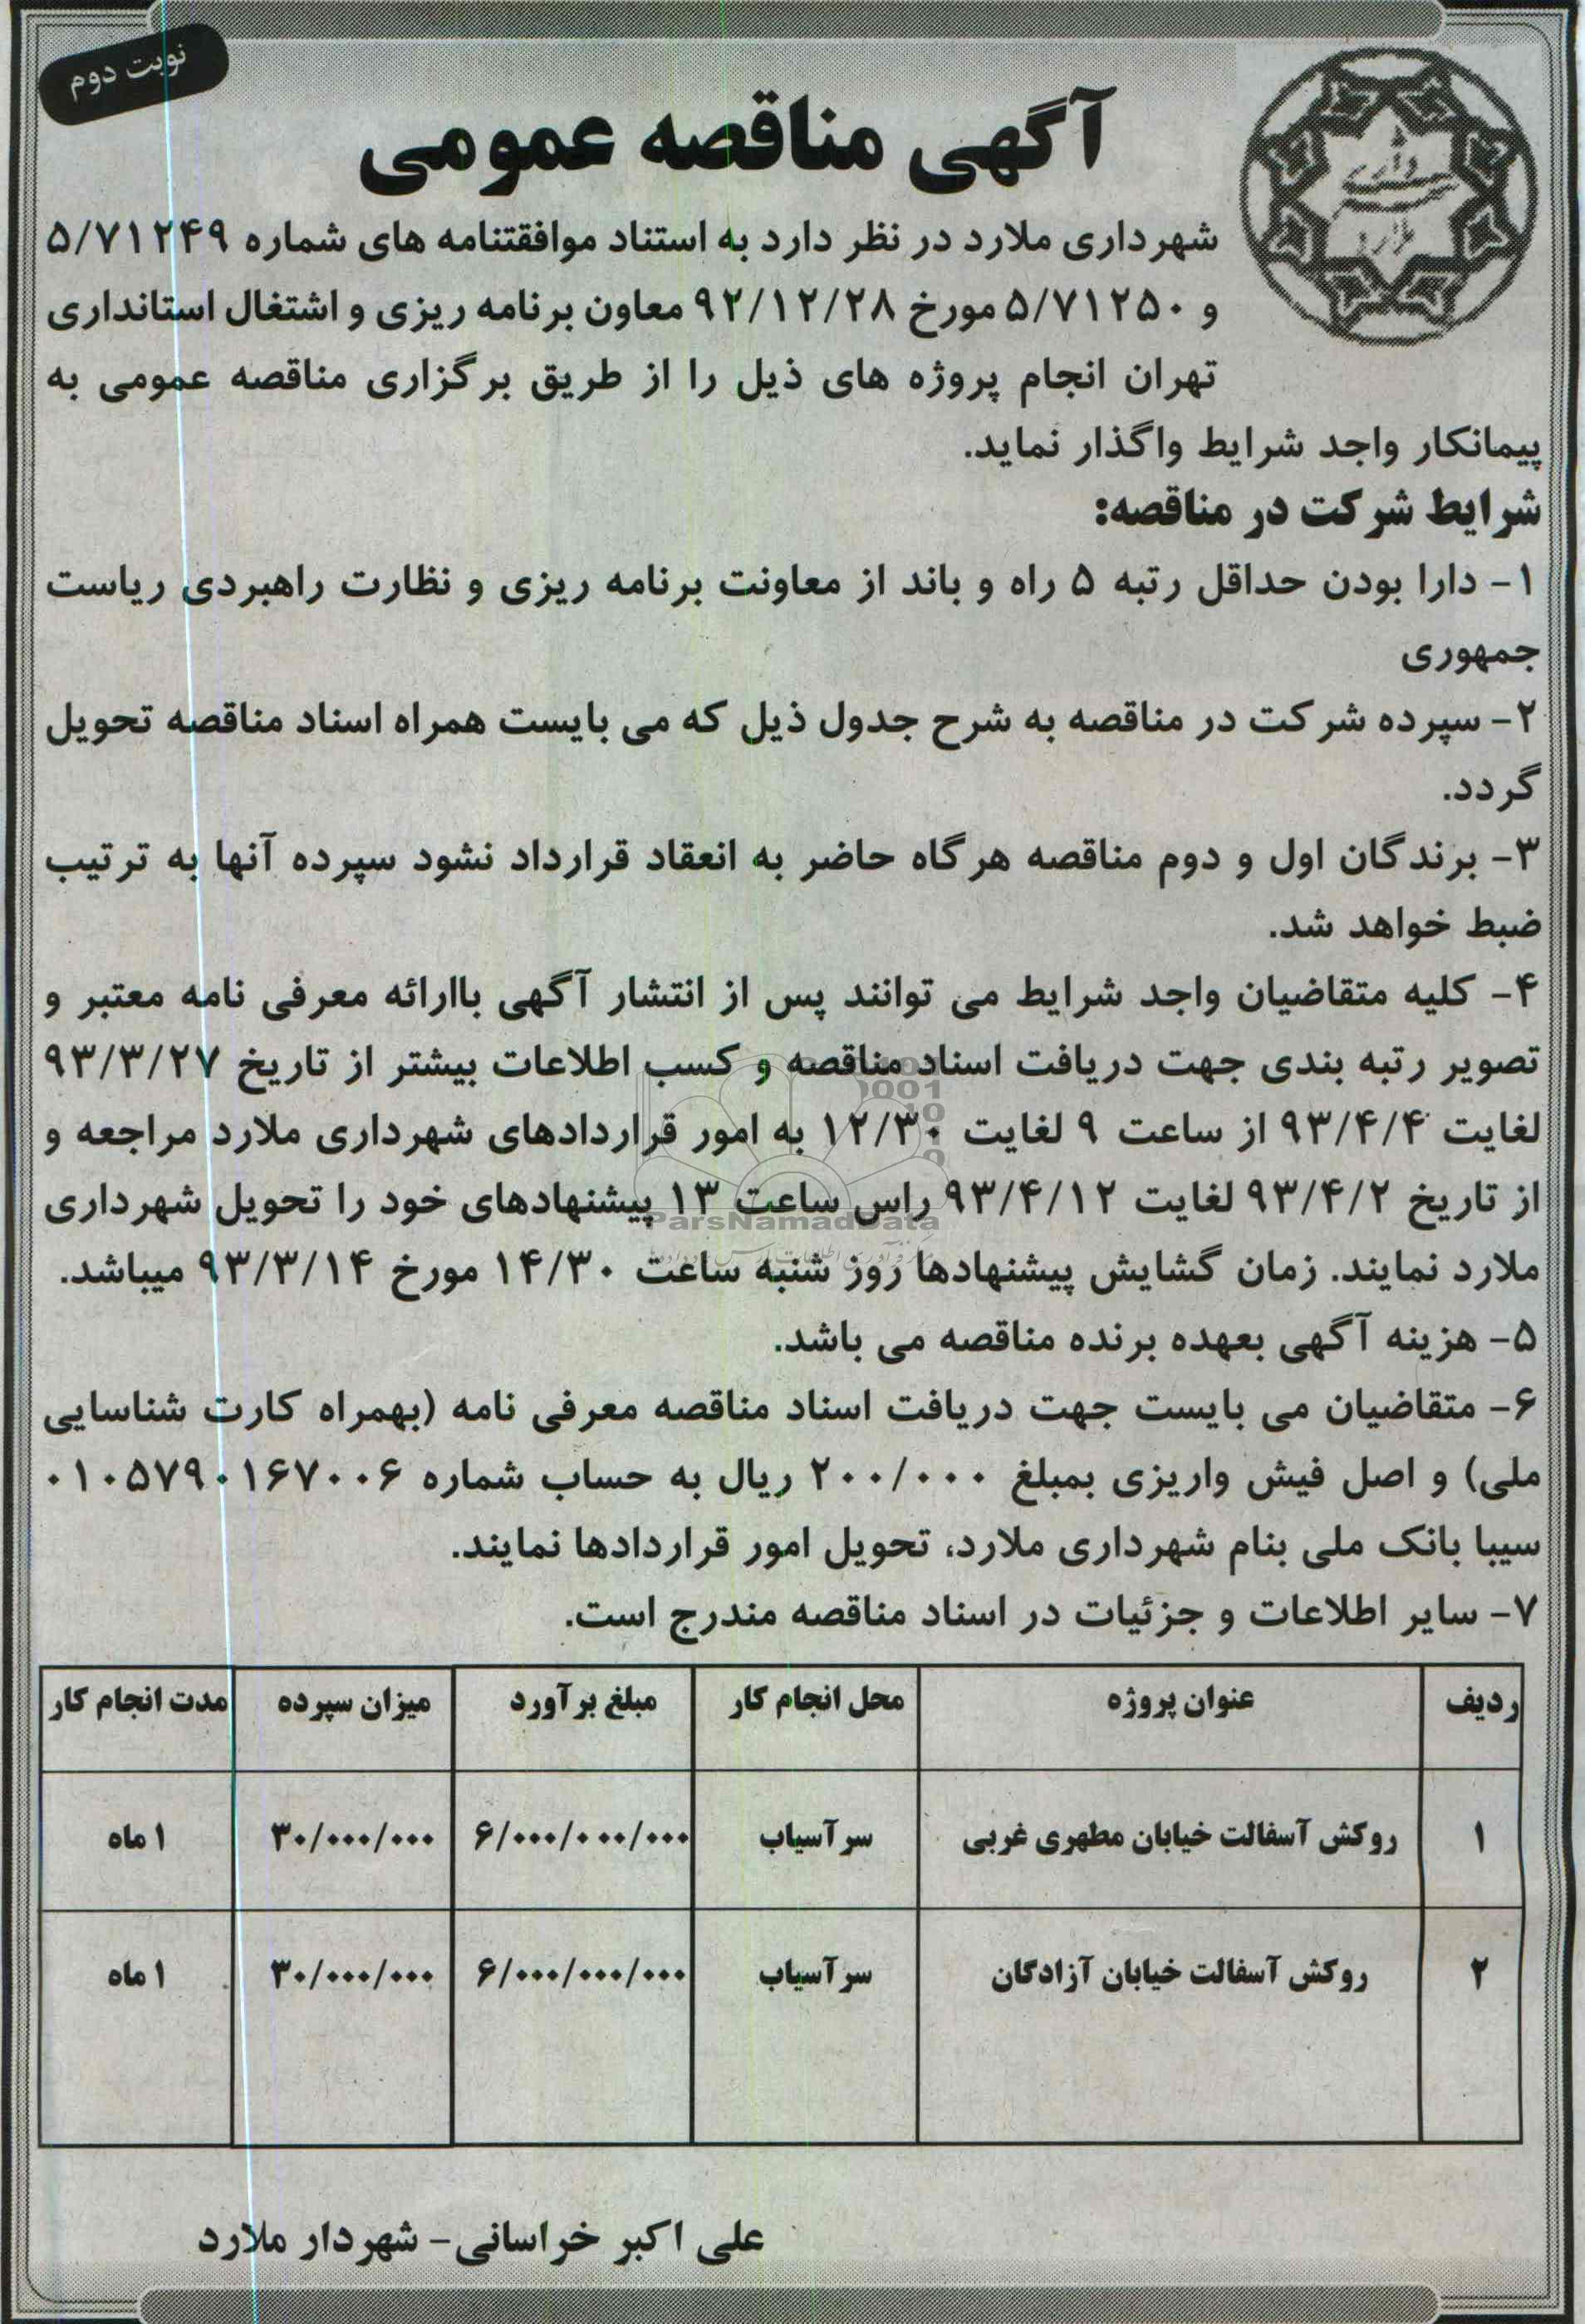 نوبت دوم
شهرداری
ملارد
آگهی مناقصه عمومی
شهرداری ملارد در نظر دارد به استناد موافقتنامه های شماره ۵/۷۱۲۴۹
و ۵/۷۱۲۵۰ مورخ ۹۲/۱۲/۲۸ معاون برنامه ریزی و اشتغال استانداری
تهران انجام پروژه های ذیل را از طریق برگزاری مناقصه عمومی به
پیمانکار واجد شرایط واگذار نماید.
شرایط شرکت در مناقصه:
۱- دارا بودن حداقل رتبه ۵ راه و باند از معاونت برنامه ریزی و نظارت راهبردی ریاست
جمهوری
۲- سپرده شرکت در مناقصه به شرح جدول ذیل که می بایست همراه اسناد مناقصه تحویل
گردد.
۳- برندگان اول و دوم مناقصه هرگاه حاضر به انعقاد قرارداد نشود سپرده آنها به ترتیب
ضبط خواهد شد.
۴- کلیه متقاضیان واجد شرایط می توانند پس از انتشار آگهی باارائه معرفی نامه معتبر و
تصویر رتبه بندی جهت دریافت اسناد مناقصه و کسب اطلاعات بیشتر از تاریخ ۹۳/۳/۲۷
لغایت ۹۳/۴/۴ از ساعت ۹ لغایت ۱۲/۳۰ به امور قراردادهای شهرداری ملارد مراجعه و
از تاریخ ۹۳/۴/۲ لغایت ۹۳/۴/۱۲ راس ساعت ۱۳ پیشنهادهای خود را تحویل شهرداری
ParsNamadData
ملارد نمایند. زمان گشایش پیشنهادها روز شنبه ساعت ۱۴/۳۰ مورخ ۹۳/۳/۱۴ میباشد.
۵- هزینه آگهی بعهده برنده مناقصه می باشد.
۶- متقاضیان می بایست جهت دریافت اسناد مناقصه معرفی نامه (بهمراه کارت شناسایی
ملی) و اصل فیش واریزی بمبلغ ۲۰۰/۰۰۰ ریال به حساب شماره ۰۱۰۵۷۹۰۱۶۷۰۰۶
سیبا بانک ملی بنام شهرداری ملارد، تحویل امور قراردادها نمایند.
۷- سایر اطلاعات و جزئیات در اسناد مناقصه مندرج است.
ردیف عنوان پروژه محل انجام کار مبلغ برآورد میزان سپرده مدت انجام کار
۱ روکش آسفالت خیابان مطهری غربی سرآسیاب ۶/۰۰۰/۰۰۰/۰۰۰ ۳۰/۰۰۰/۰۰۰ ۱ ماه
۲ روکش آسفالت خیابان آزادگان سرآسیاب ۶/۰۰۰/۰۰۰/۰۰۰ ۳۰/۰۰۰/۰۰۰ ۱ ماه
علی اکبر خراسانی- شهردار ملارد